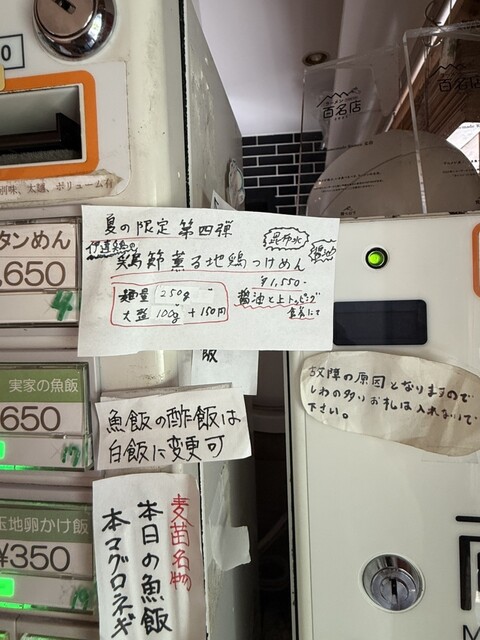 百名店
別味、太麺、ボリューム有
夏の限定 第四弾
伊達鶏の
昆布水
醤油
節薫る地鶏つけめん
¥1,550-
麺量 250g
大盛 100g +150円
タンめん
,650
4
飯
実家の魚飯
650
魚飯の酢飯は
白飯に変更可
玉地卵かけ飯
¥350
麦苗名物
本日の魚飯
本マグロネギ
故障の原因となりますので
しわの多いお札は入れないで
下さい。